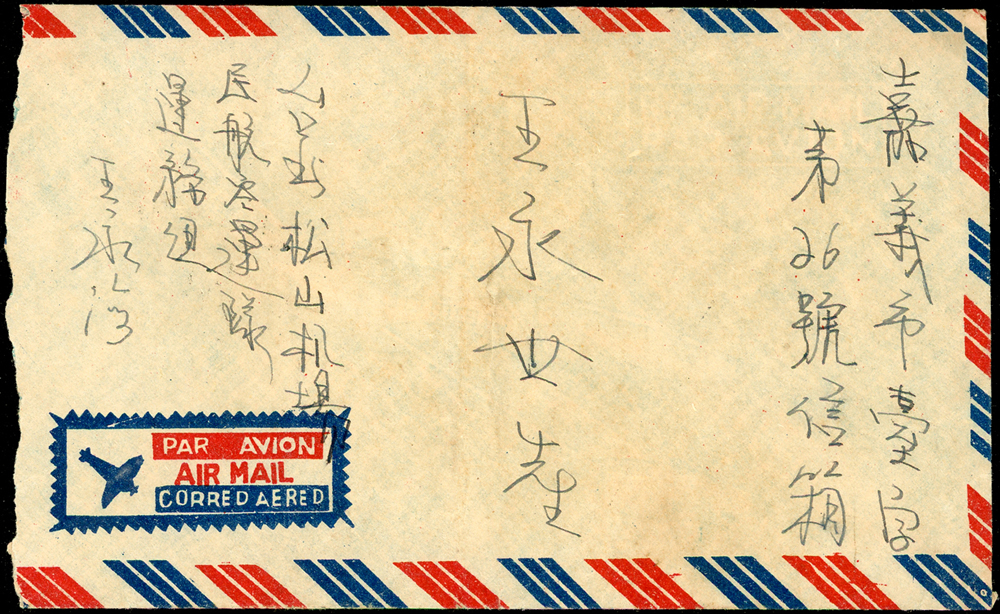 嘉義市臺字
第26號信箱
王永世先生
松山机場
民航空運隊
運務組
王永
PAR AVION
AIR MAIL
CORRED AERED